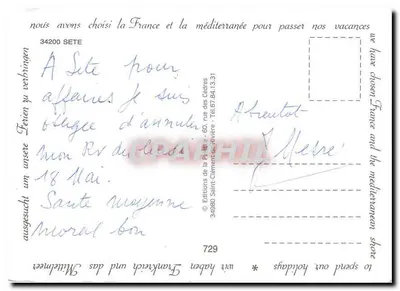 nous avons choisi la France et la méditerranée pour passer nos vacances
34200 SETE
A Sete pour
affaires je suis
obligée d'annuler
mon Rv du lundi
18 Mai.
Sante moyenne
moral bon
A bientot
© Editions de la Pyramide, 60, rue des Cèdres
34980 Saint-Clément-la-Rivière - Tél. 67.84.13.31
729
we have chosen France and the mediterranean shore
to spend our holidays * wir haben Frankreich und das Mittelmeer
ausgesucht um unsere Ferien zu verbringen